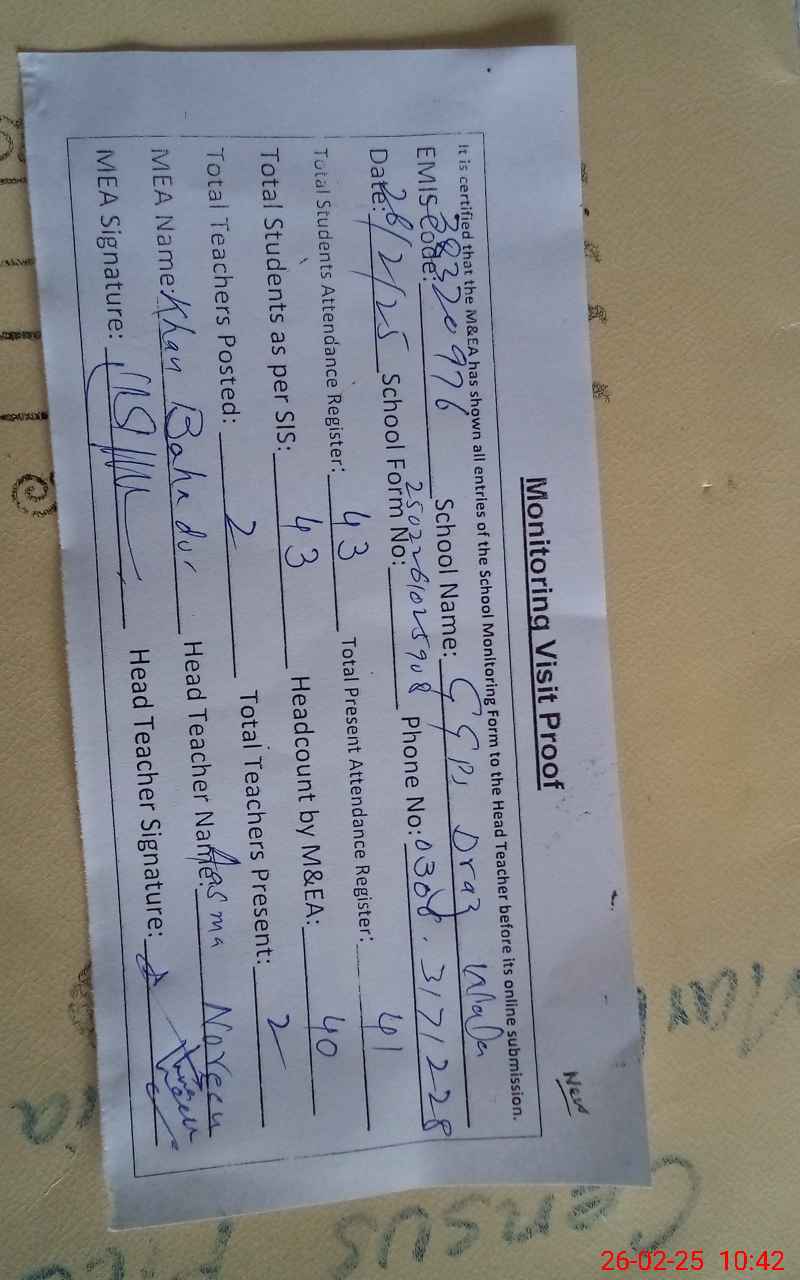 Monitoring Visit Proof
New
It is certified that the M&EA has shown all entries of the School Monitoring Form to the Head Teacher before its online submission.
EMIS Code: 38320976 School Name: GGPS Draz Wala
Date: 26/2/25 School Form No: 2502261025908 Phone No: 0308.3171228
Total Students Attendance Register: 43 Total Present Attendance Register: 41
Total Students as per SIS: 43 Headcount by M&EA: 40
Total Teachers Posted: 2 Total Teachers Present: 2
MEA Name: Khan Bahadur Head Teacher Name: Aasma Noreen
MEA Signature: Head Teacher Signature:
Census
26-02-25 10:42